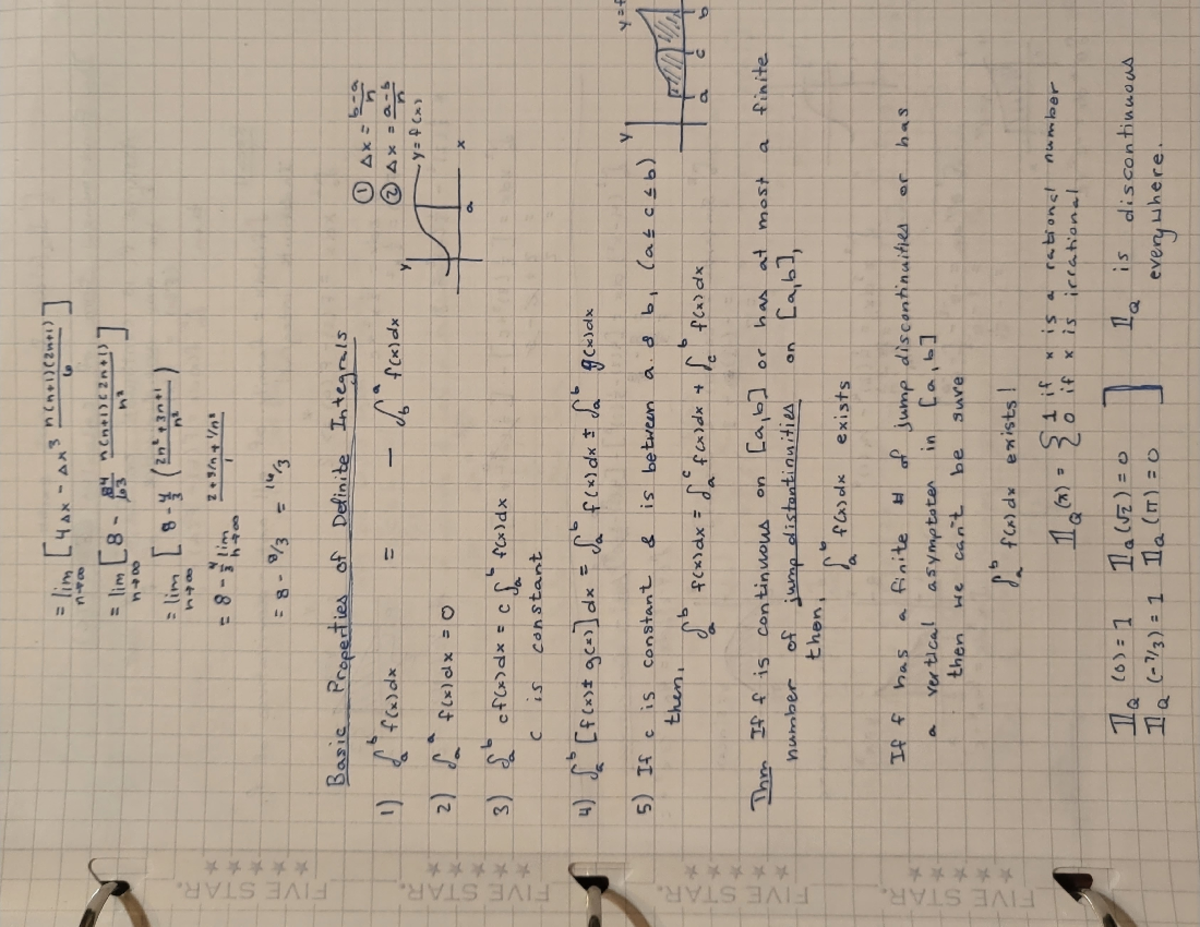 = lim n→∞ [4Δx - Δx³ n(n+1)(2n+1)/6]
= lim n→∞ [8 - 84/63 n(n+1)(2n+1)/n³]
= lim n→∞ [8 - 4/3 (2n² + 3n+1/n²)
= 8 - 4/3 lim n→∞ 2+3/n+1/n²/1
= 8 - 8/3 = 16/3
Basic Properties of Definite Integrals
① Δx = b-a/n
② Δx = a-b/n
1) ∫ₐᵇ f(x)dx = - ∫_b^a f(x)dx
y
y=f(x)
a
x
2) ∫ₐᵃ f(x)dx = 0
3) ∫ₐᵇ cf(x)dx = c∫ₐᵇ f(x)dx
c is constant
4) ∫ₐᵇ [f(x)± g(x)]dx = ∫ₐᵇ f(x)dx ± ∫ₐᵇ g(x)dx
5) If c is constant & is between a & b, (a ≤ c ≤ b)
then,
∫ₐᵇ f(x)dx = ∫ₐᶜ f(x)dx + ∫_c^b f(x)dx
y
y=f
a c b
Thm If f is continuous on [a,b] or has at most a finite
number of jump distontinuities on [a,b],
then,
∫ₐᵇ f(x)dx exists
If f has a finite # of jump discontinuities or has
a vertical asymptotes in [a,b]
then we can't be sure
∫ₐᵇ f(x)dx exists!
𝟙_Q (x) = { 1 if x is a rational number
0 if x is irrational
𝟙_Q (0) = 1 𝟙_Q (√2) = 0 ] 𝟙_Q is discontinuous
𝟙_Q (-7/3) = 1 𝟙_Q (π) = 0 everywhere.
FIVE STAR.
★★★★★
FIVE STAR.
★★★★★
FIVE STAR.
★★★★★
FIVE STAR.
★★★★★